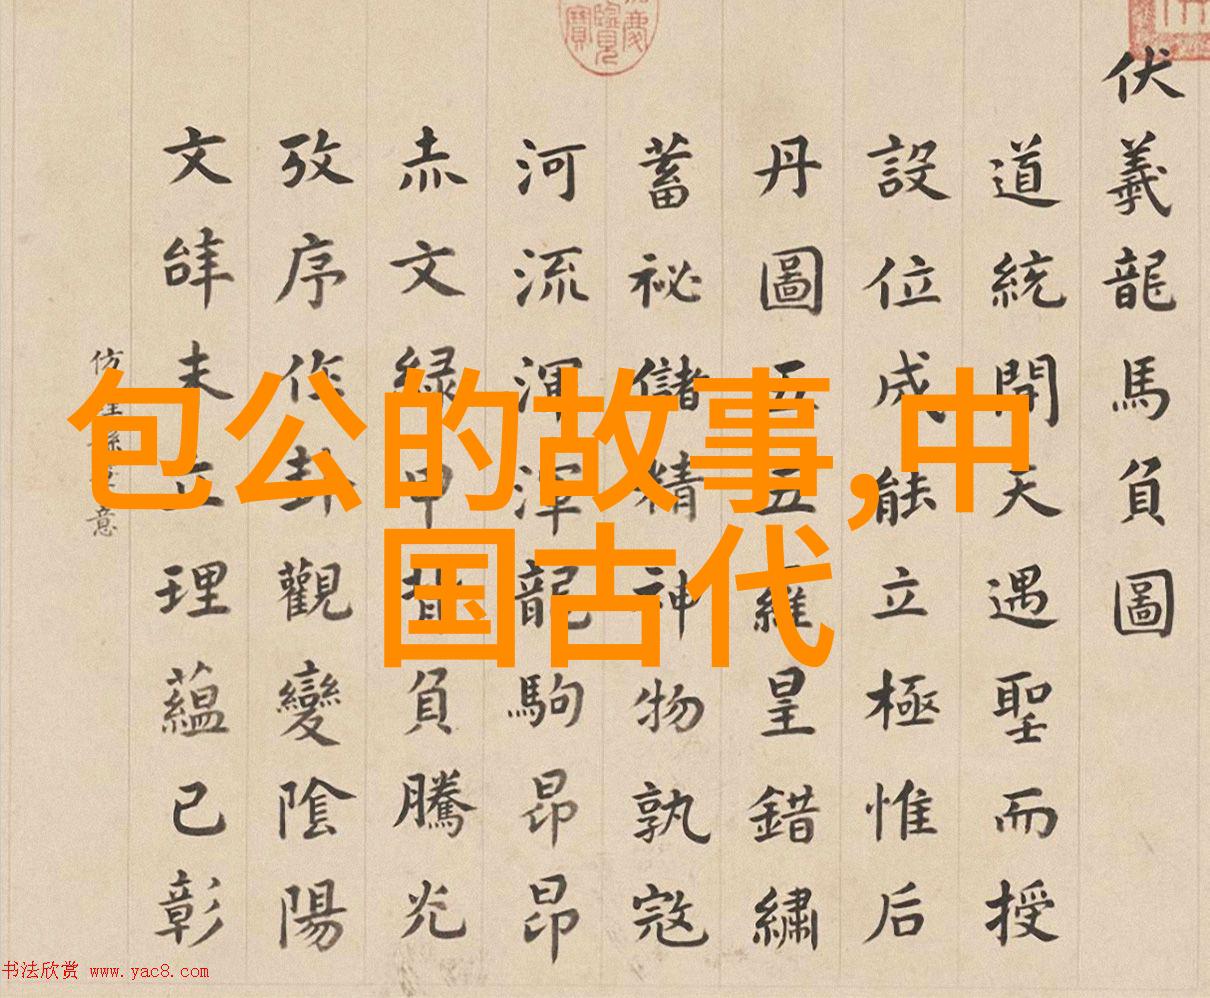 伏羲龍馬負圖
道統開天遇聖而授
設位成能立極惟后
丹圖五五羅皇錯繡
蓄祕儲精神物孰寇
河流渾渾龍駒昂昂
赤文綠甲背負騰光
攷序作卦觀變陰陽
文辞未立理蘊已彰
仿 意
包公的故事,中
国古代
书法欣赏 www.yac8.com